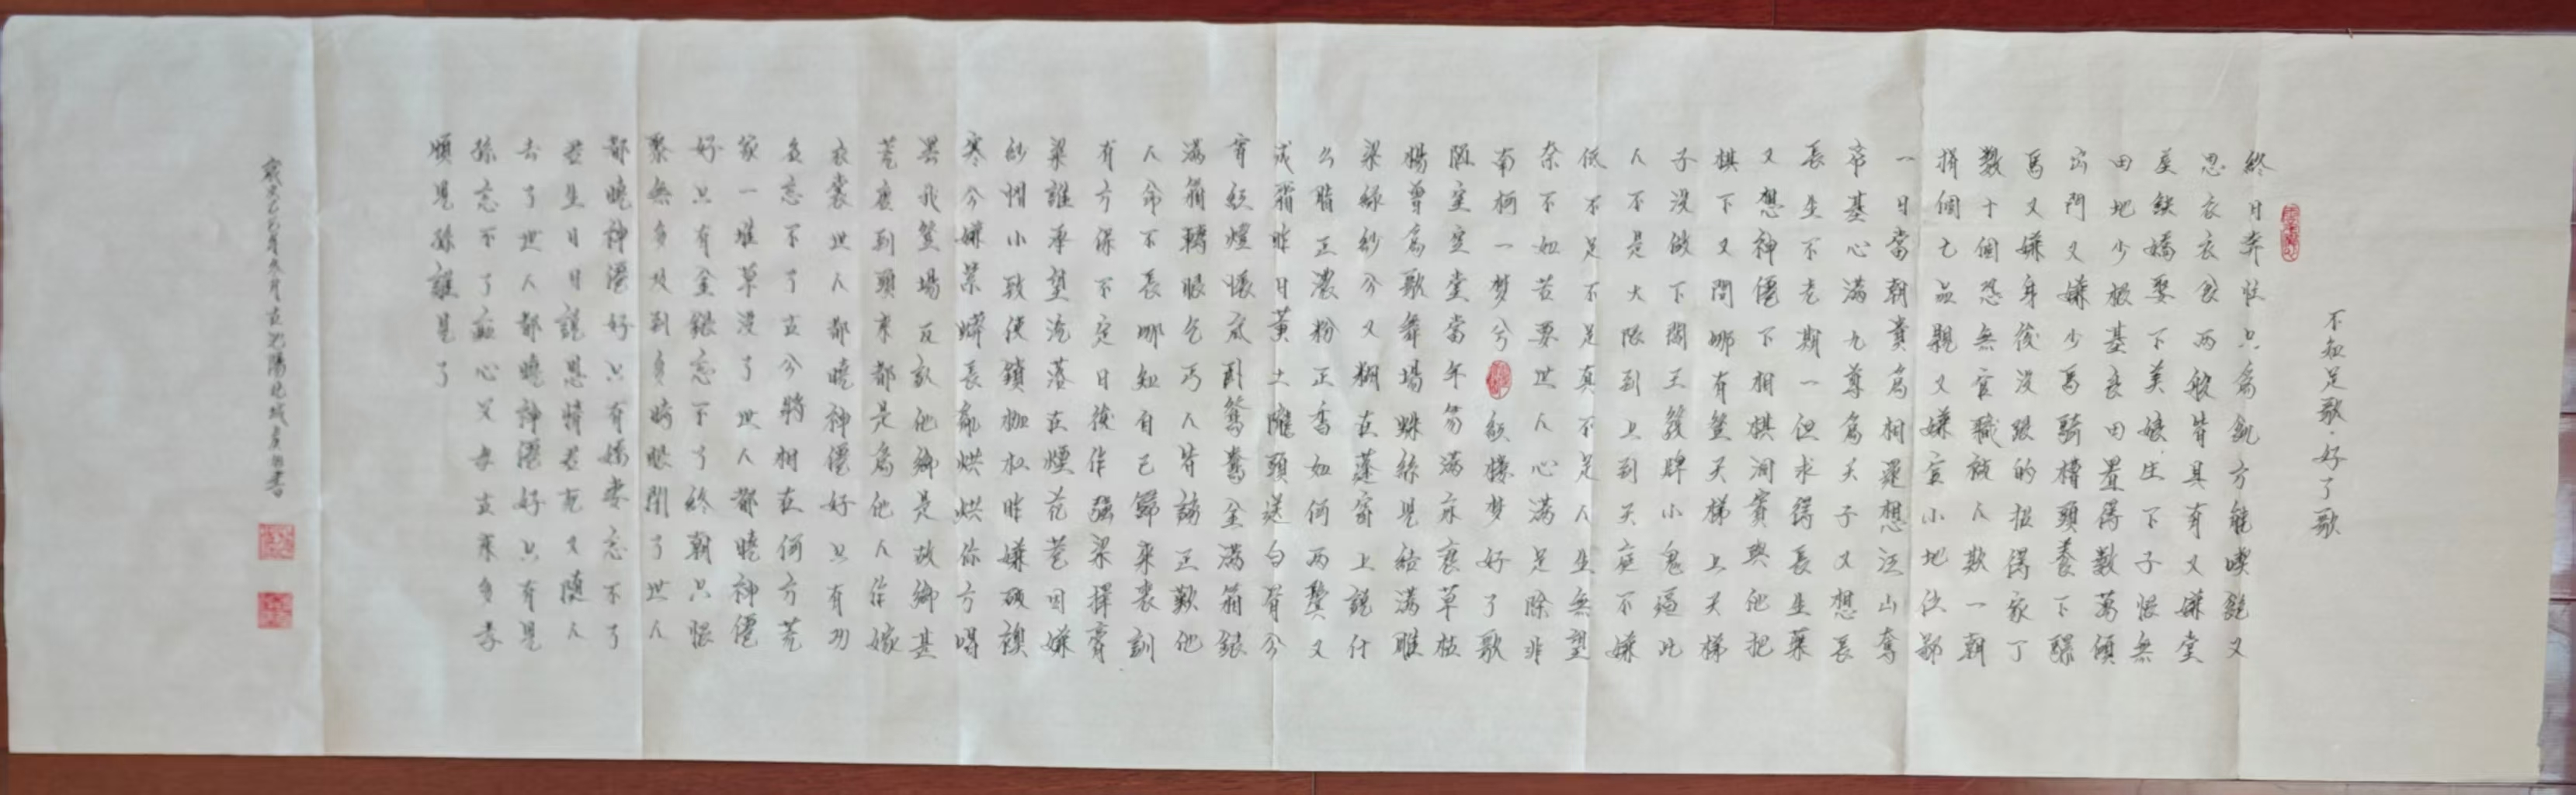 不知足歌·好了歌
終日奔忙只為飢方能喫飽又
思衣衣食两般皆具有又嫌堂
屋缺嬌娶下美娘生下子恨無
田地少根基良田置得數萬傾
出門又嫌少馬騎槽頭養下騾
馬又嫌身後沒跟的招得家丁
數十個恐無官職被人欺一朝
捐個七品親又嫌官小地位鄙
一日當朝貴為相還想江山奪
帝基心滿九尊為天子又想長
長生不老期一但求得長生藥
又想神僊下相棋洞賓與他把
棋下又問哪有登天梯上天梯
子沒做下閻王發牌小鬼逼此
人不是大限到上到天庭不嫌
低不足不足真不足人生無望
奈不如苦要世人心滿足除非
南柯一梦兮 紅樓梦好了歌
陋室空堂當年笏滿床衰草枯
楊曾為歌舞場蛛絲兒結滿雕
梁綠紗兮又糊在蓬窗上說什
么脂正濃粉正香如何两鬢又
成霜昨日黃土隴頭送白骨兮
宵紅燈帳底卧鴛鴦金滿箱銀
滿箱轉眼乞丐人皆謗正歎他
人命不長哪知自己歸來喪訓
有方保不定日後作强梁擇膏
粱誰承望流落在煙花巷因嫌
紗帽小致使鎖枷杠昨嫌破襖
寒今嫌紫蟒長亂烘烘你方唱
罷我登場反認他鄉是故鄉甚
荒唐到頭來都是為他人作嫁
衣裳世人都曉神僊好只有功
名忘不了古今將相在何方荒
冢一堆草沒了世人都曉神僊
好只有金銀忘不了終朝只恨
聚無多及到多時眼閉了世人
都曉神僊好只有嬌妻忘不了
君生日日說恩情君死又隨人
去了世人都曉神僊好只有兒
孫忘不了痴心父母古來多孝
順兒孫誰見了
歲次乙巳年冬月古沈陽北城書